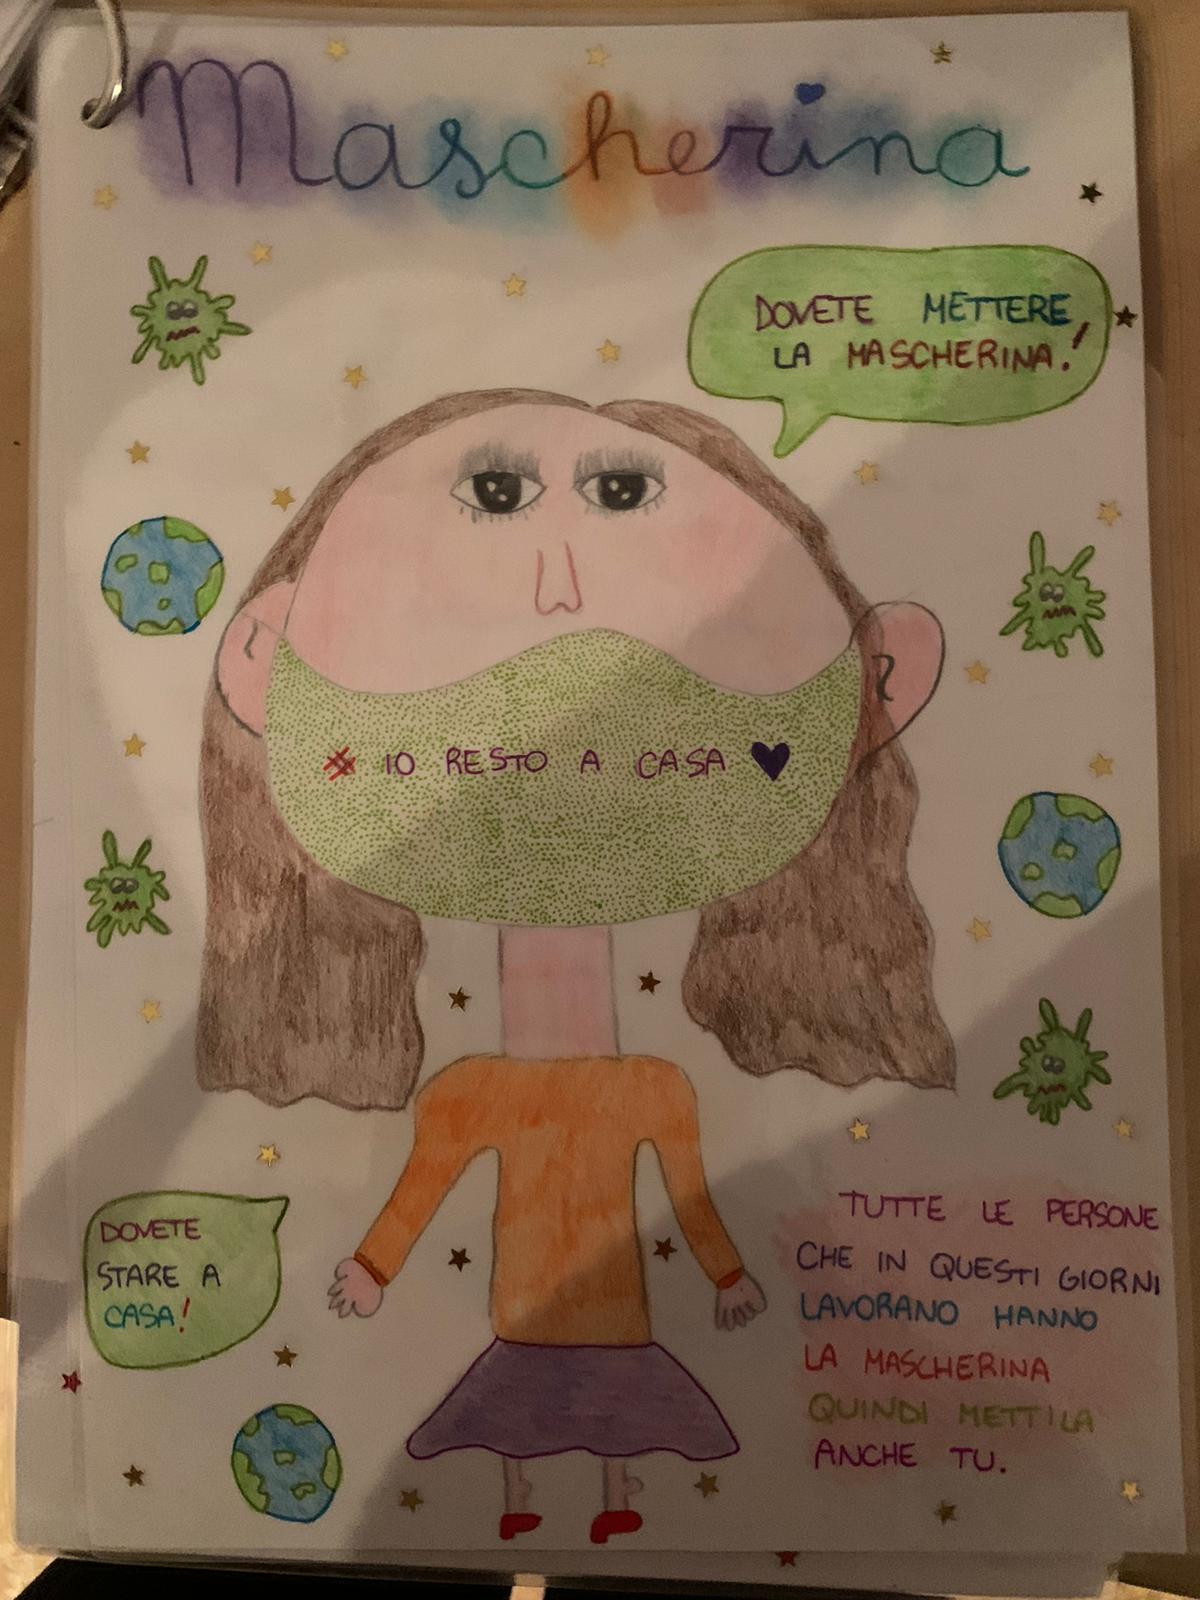 Mascherina
DOVETE METTERE
LA MASCHERINA!
# IO RESTO A CASA
DOVETE
STARE A
CASA!
TUTTE LE PERSONE
CHE IN QUESTI GIORNI
LAVORANO HANNO
LA MASCHERINA
QUINDI METTILA
ANCHE TU.